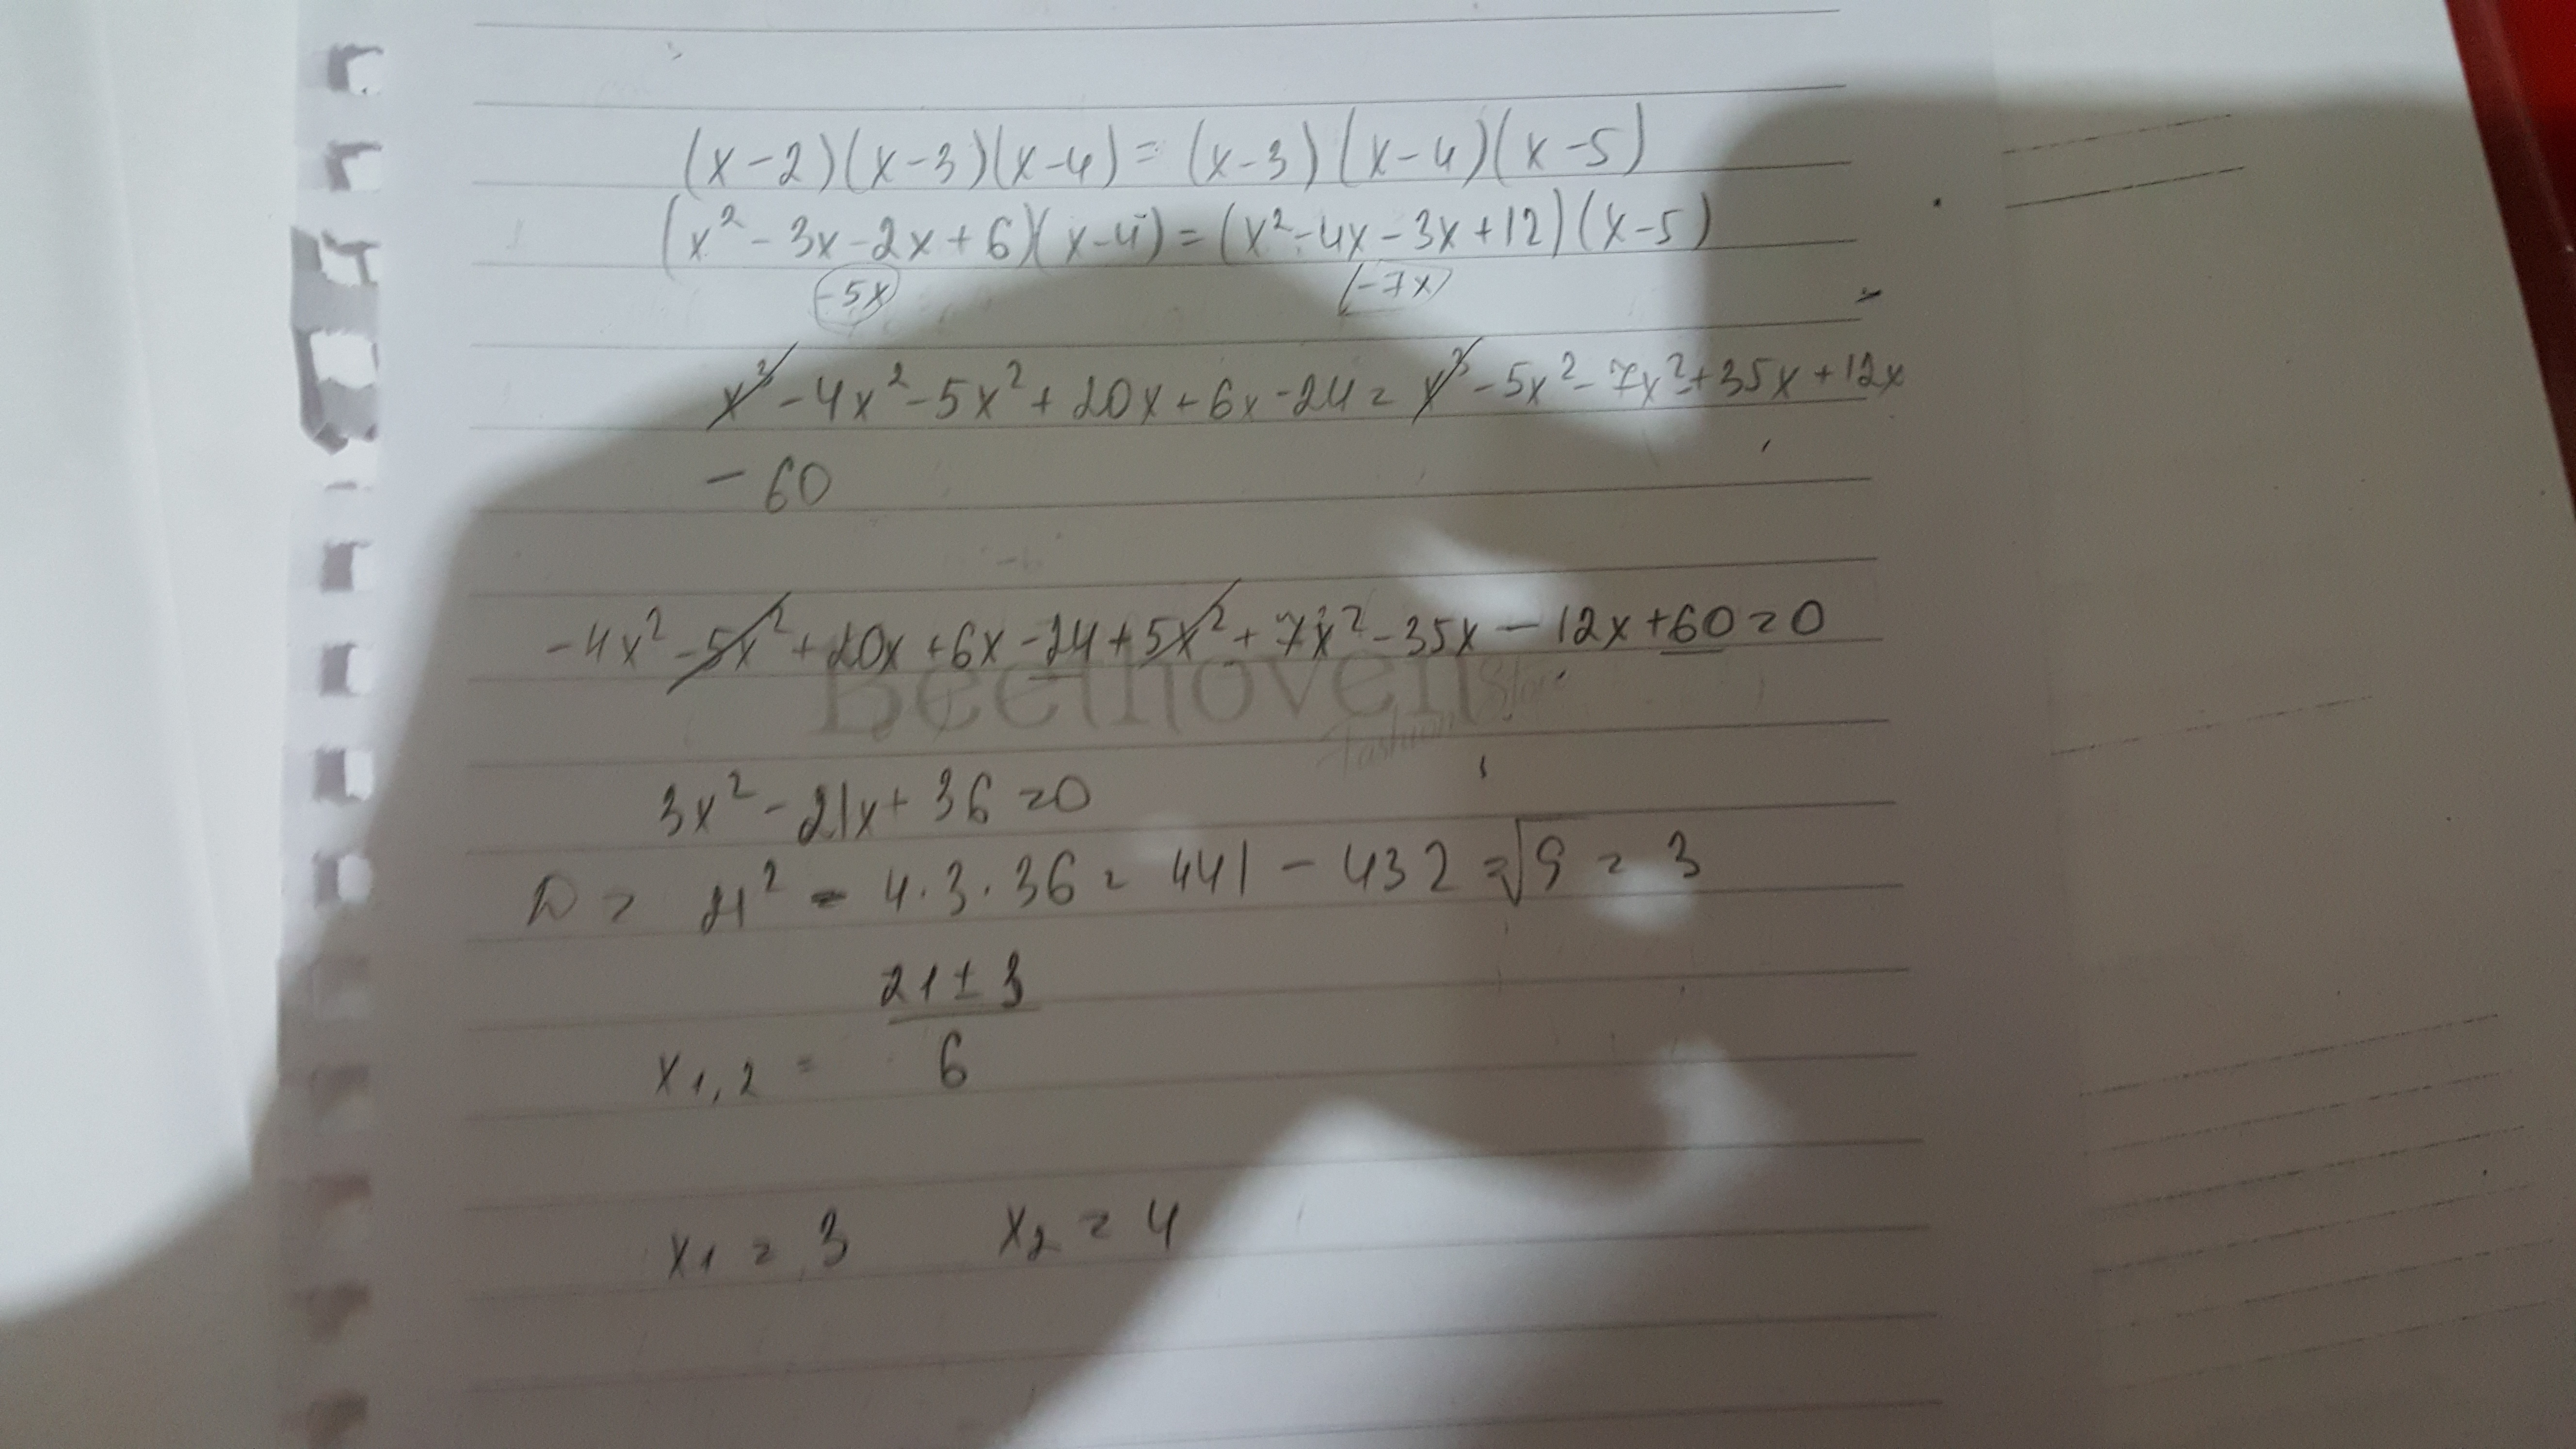 (x-2)(x-3)(x-4) = (x-3)(x-4)(x-5)
(x² - 3x - 2x + 6)(x-4) = (x² - 4x - 3x + 12)(x-5)
-5x (-7x)
x³ - 4x² - 5x² + 20x + 6x - 24 = x³ - 5x² - 7x² + 35x + 12x
- 60
-4x² - 5x² + 20x + 6x - 24 + 5x² + 7x² - 35x - 12x + 60 = 0
Beethoven Store
Fashion
3x² - 21x + 36 = 0
D = 21² - 4·3·36 = 441 - 432 = √9 = 3
21 ± 3
x1,2 = 6
x1 = 3 x2 = 4